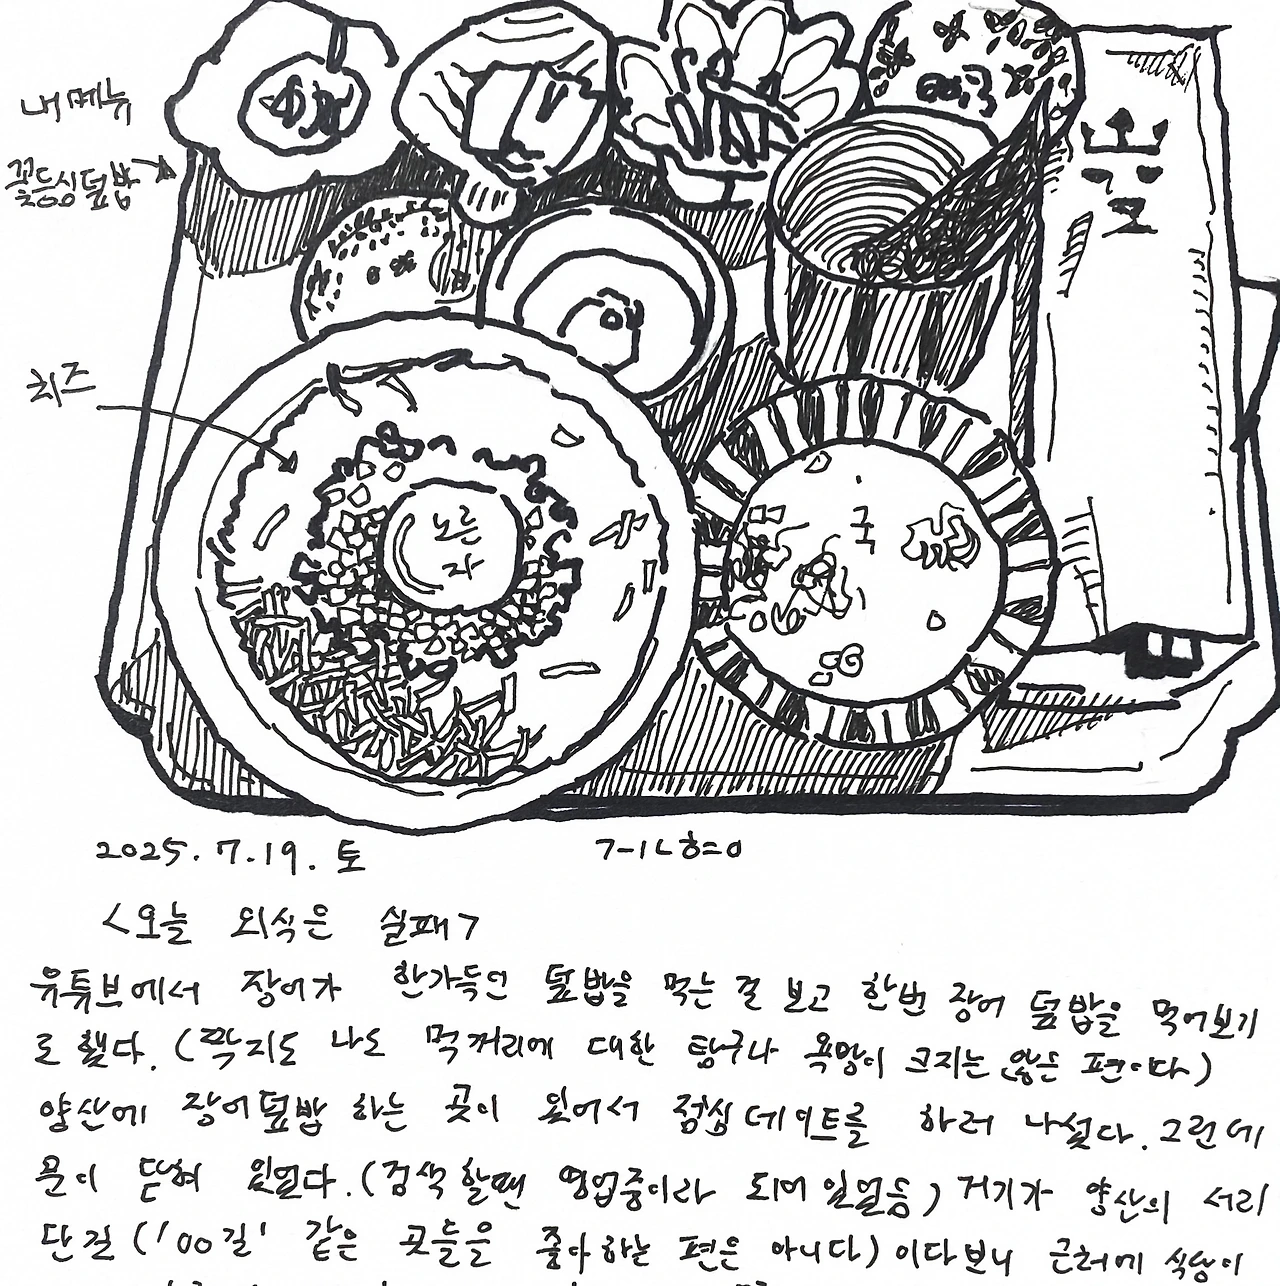 내 메뉴
꽃등심덮밥
치즈
노른
자
국
2025. 7. 19. 토
<오늘 외식은 실패>
유튜브에서 장어가 한가득인 덮밥을 먹는 걸 보고 한번 장어 덮밥을 먹어보기
로 했다. (짝지도 나도 먹꺼리에 대한 탐구나 욕망이 크지는 않은 편이다)
양산에 장어덮밥 하는 곳이 있어서 점심 데이트를 하러 나섰다. 그런데
문이 닫혀 있었다. (검색할땐 영업중이라 되어 있었음) 거기가 양산의 서리
단길 ('00길' 같은 곳들을 좋아하는 편은 아니다) 이다보니 근처에 식당이